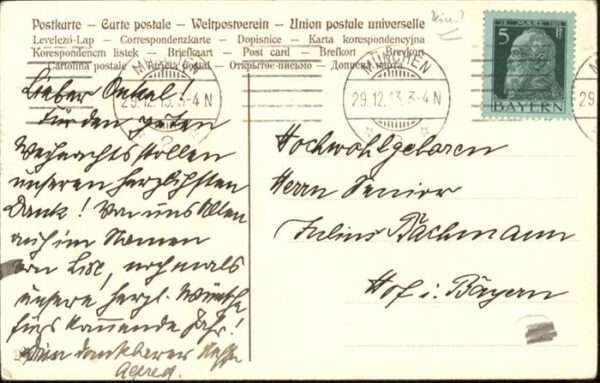 Postkarte – Carte postale – Weltpostverein – Union postale universelle
Levelező-Lap – Correspondenzkarte – Dopisnice – Karta korespondencyjna
Korespondencni listek – Briefkaart – Post card – Brefkort – Brevkort
Cartolina postale – Tarjeta postal – Открытое письмо – Дописна карта
MÜNCHEN
29.12.13. 3-4 N
2
MÜNCHEN
29.12.13. 3-4 N
5 Pf
BAYERN
Lieber Onkel!
Für den guten
Weihnachtsstollen
unseren herzlichsten
Dank! Von uns Allen
auch im Namen
von Lise, nochmals
unsere herzl. Wünsche
fürs kommende Jahr!
Dein dankbarer Neffe
Alfred.
Hochwohlgeboren
Herrn Senior
Julius Bachmann
Hof i. Bayern